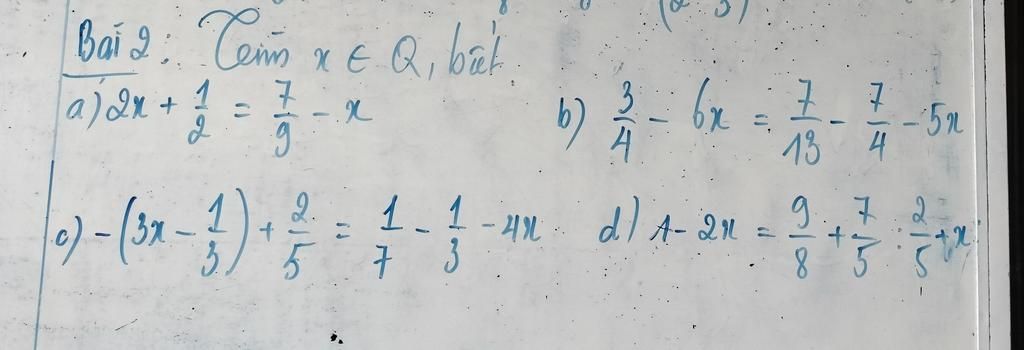 Bài 2: Tìm x ∈ Q, biết
a) 2x + 1/2 = 7/9 - x
b) 3/4 - 6x = 7/13 - 7/4 - 5x
c) -(3x - 1/3) + 2/5 = 1/7 - 1/3 - 4x
d) 1 - 2x = 9/8 + 7/5 : 2/5 + x